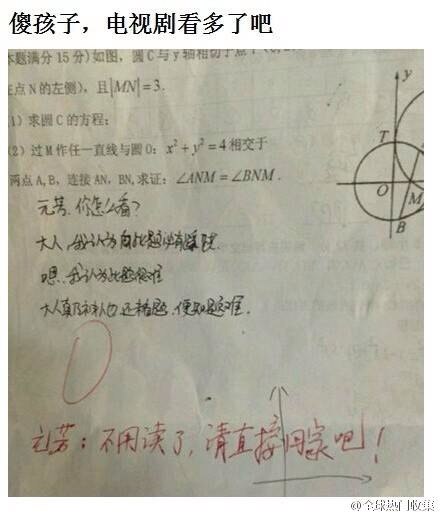 傻孩子，电视剧看多了吧
本题满分15分)如图，圆C与y轴相切于点T
在点N的左侧)，且|MN|=3.
1)求圆C的方程；
(2)过M作任一直线与圆O：x²+y²=4相交于
两点A,B，连接AN，BN,求证：∠ANM=∠BNM.
y
T
O
M
B
元芳,你怎么看?
大人,我认为此题必有蹊跷
嗯,我认为此题很难
大人真乃神人也,还看题,便知是这难.
元芳：不用读了,请直接回家吧!
@全球热门收集